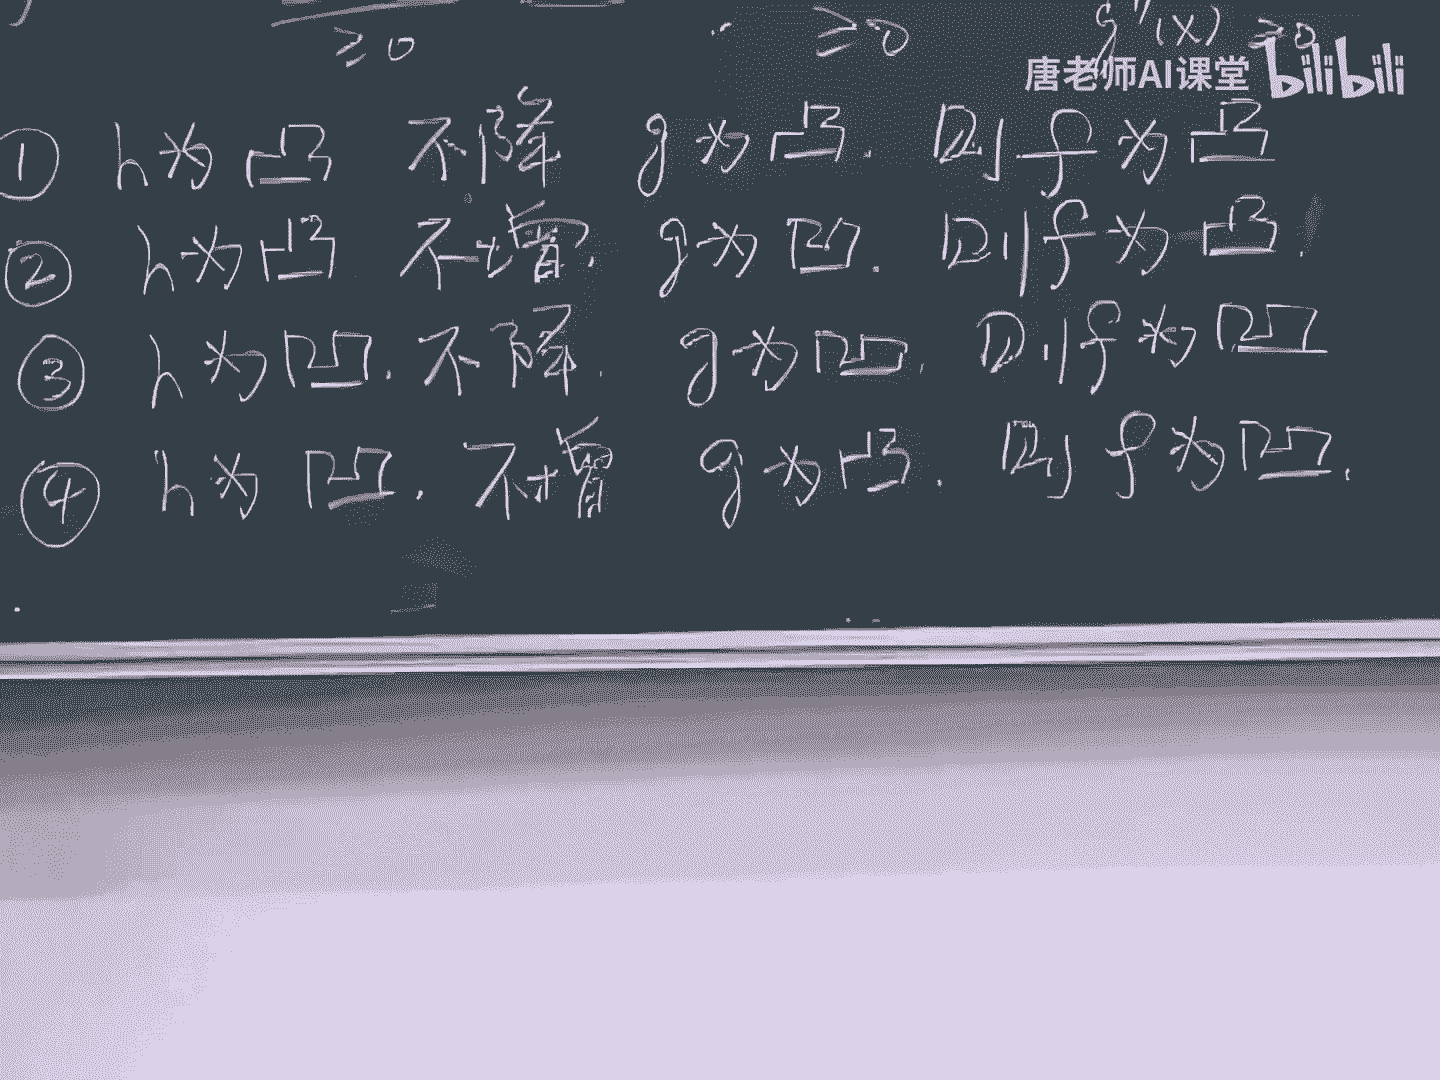 ≥0 ≥0 g''(x) ≥0
唐老师AI课堂 bilibili
① h为凸 不降 g为凸. 则f为凸
② h为凸 不增. g为凹. 则f为凸.
③ h为凹. 不降. g为凹. 则f为凹
④ h为凹. 不增 g为凸. 则f为凹.